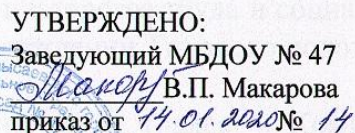 УТВЕРЖДЕНО:
Заведующий МБДОУ № 47
В.П. Макарова
приказ от 14.01.2020 № 14